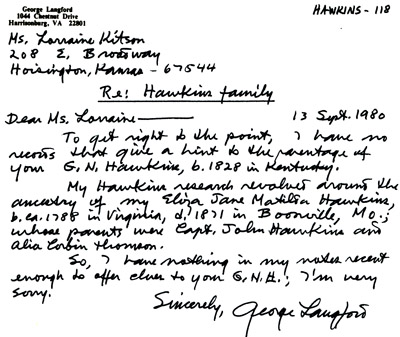 George Langford
1044 Chestnut Drive
Harrisonburg, VA 22801
HAWKINS - 118
Ms. Lorraine Kitson
208 E. Broadway
Hoisington, Kansas - 67544
Re: Hawkins family
Dear Ms. Lorraine
13 Sept. 1980
To get right to the point, I have no
records that give a hint to the parentage of
your G. N. Hawkins, b. 1828 in Kentucky.
My Hawkins research revolved around the
ancestry of my Eliza Jane Matilda Hawkins,
b. ca. 1788 in Virginia, d. 1871 in Boonville, Mo.;
whose parents were Capt. John Hawkins and
Alia Corbin Thomson.
So, I have nothing in my notes recent
enough to offer clues to your G. N. H.; I'm very
sorry.
Sincerely,
George Langford